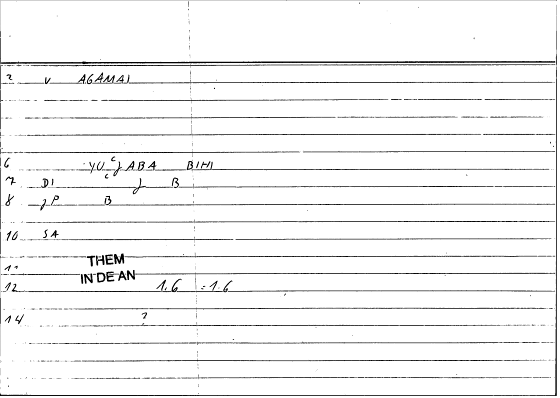 2 V AGAMAI
6 YUcJABA BIHI
7 DI c J B
8 JP B
10 SA
THEM
IN DE AN
12 1.6 :1.6
14 ?